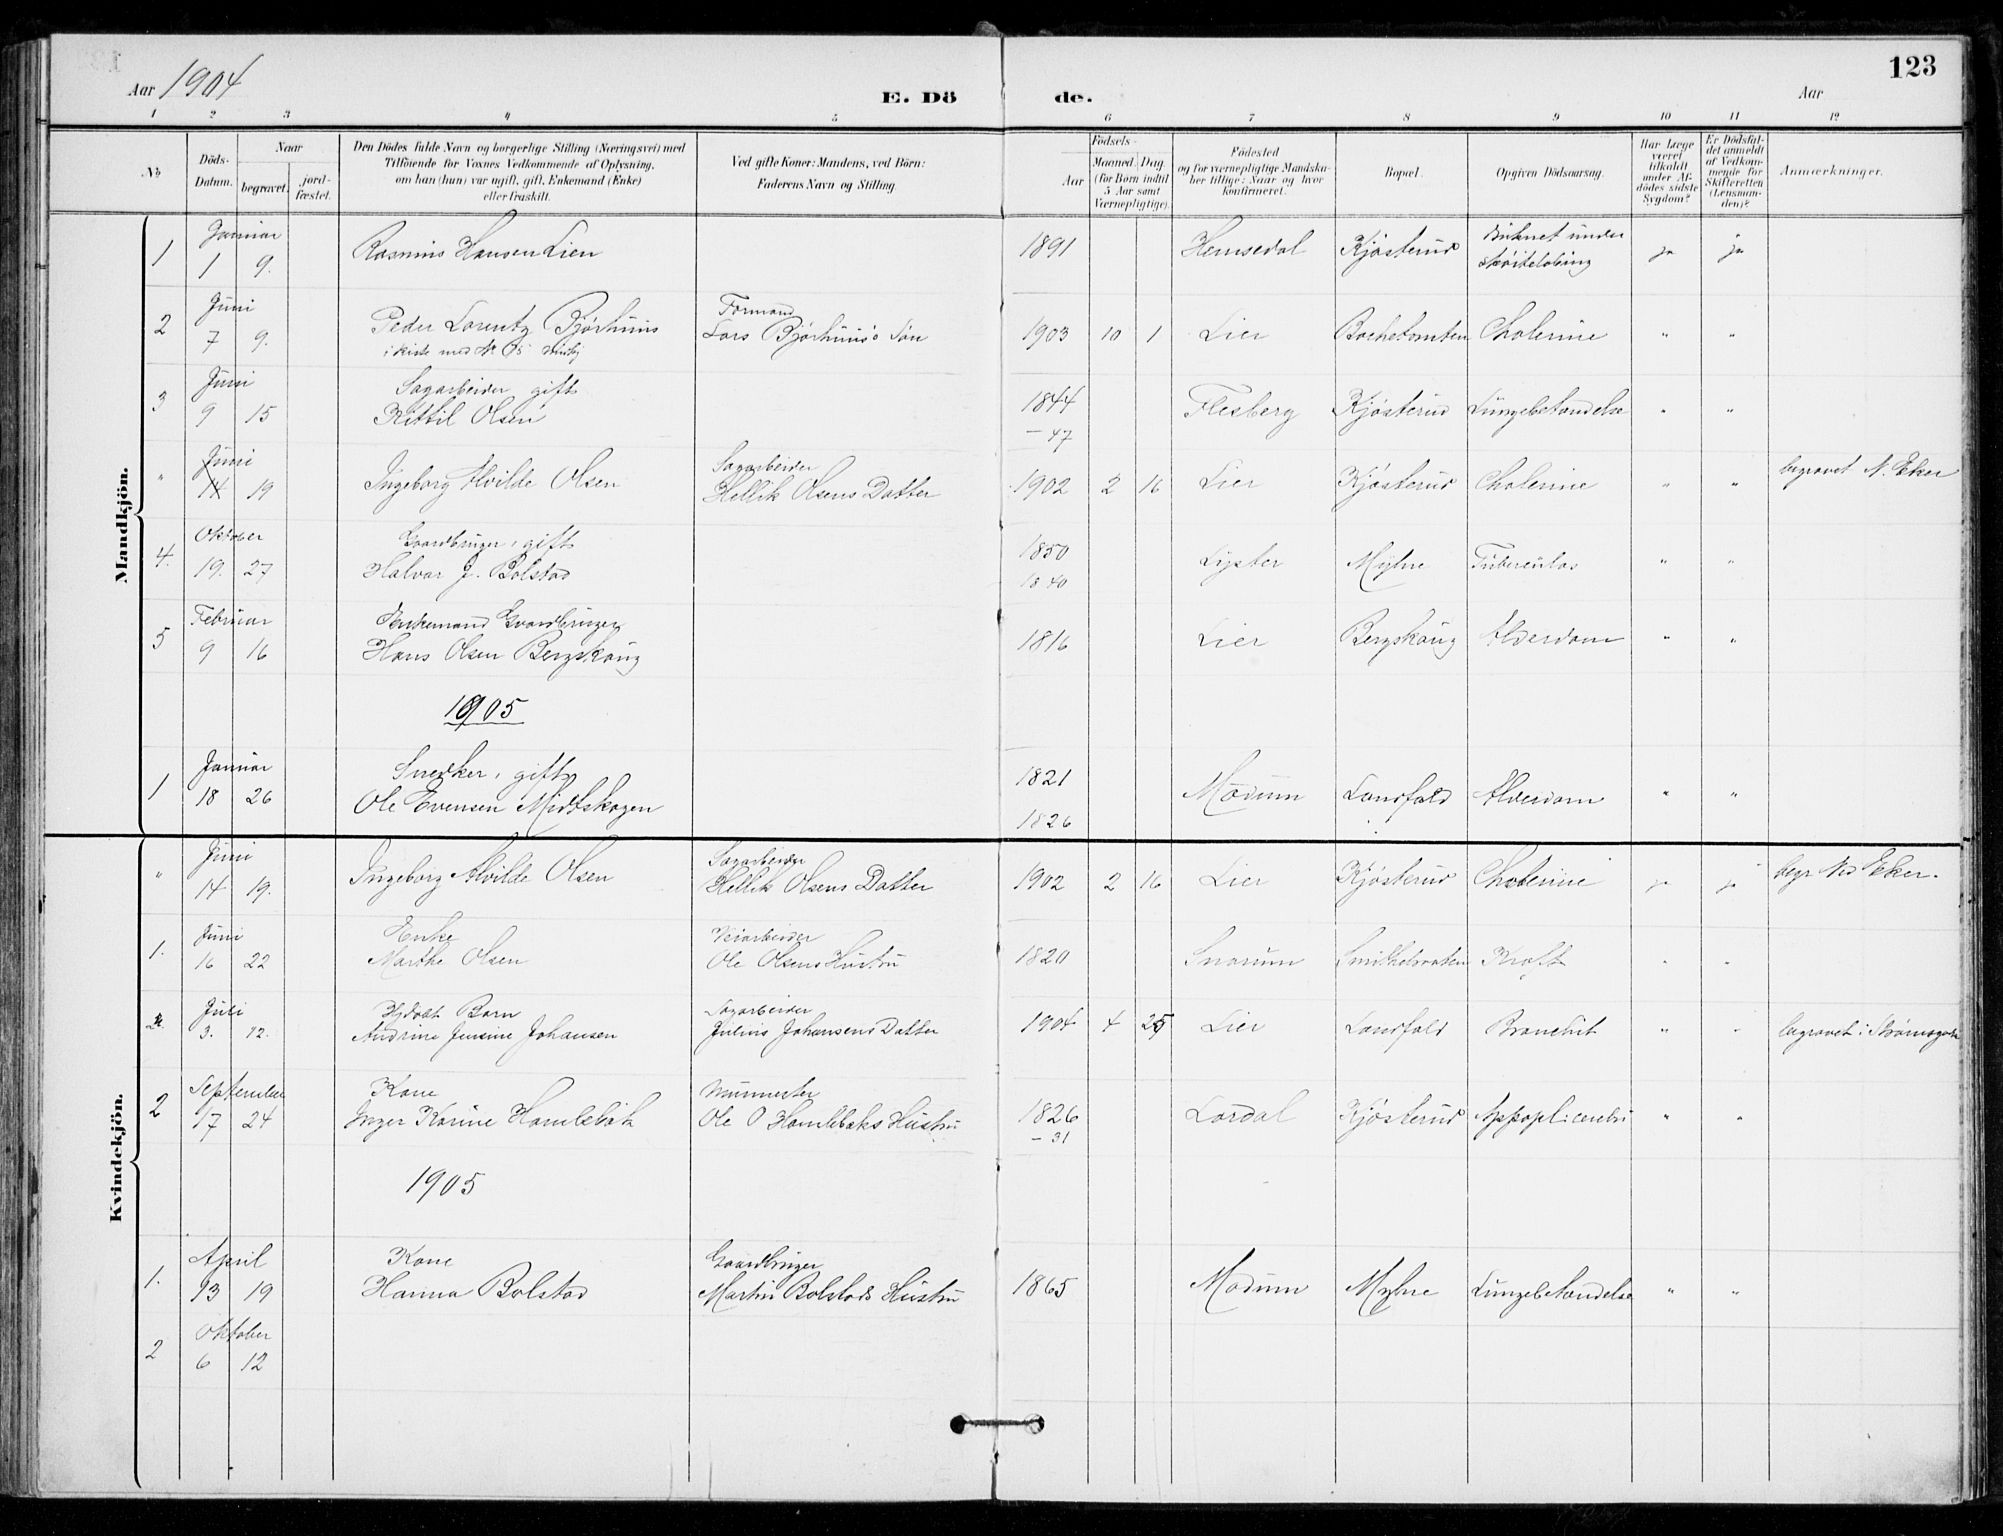 123
Aar 1904
E. Dö de.
Aar
1 2 3 4 5 6 7 8 9 10 11 12
№
Döds-Datum.
Naar
begravet.
jord-fæstet.
Den Dödes fulde Navn og borgerlige Stilling (Næringsvei) med
Tilföiende for Voxnes Vedkommende af Oplysning,
om han (hun) var ugift, gift, Enkemand (Enke)
eller fraskilt.
Ved gifte Koner: Mandens, ved Börn:
Faderens Navn og Stilling.
Födsels-
Aar
Maaned. Dag.
(for Börn indtil
5 Aar samt
Værnepligtige).
Födested
og for værnepligtige Mandska-
ber tillige: Naar og hvor
konfirmeret.
Bopæl.
Opgiven Dödsaarsag.
Har Læge
været
tilkaldt
under Af-
dödes sidste
Sygdom?
Er Dödsfal-
det anmeldt
af Vedkom-
mende for
Skifteretten
(Lensman-
den)?
Anmærkninger.
Mandkjön.
Januar
1 1 9. Rasmus Hansen Lien 1891 Hemsedal Kjøsterud Druknet under
skøiteløbing ja ja
Juni
2 7 9. Peder Lorentz Bjørhuus Formand
Lars Bjørhuus's Søn 1903 10 1 Lier Bachetomten Cholerine " "
i kiste med N
Juni
3 9 15 Sagarbeider, gift
Kittil Olsen 1844
- 47 Flesberg Kjøsterud Lungebetændelse " "
Juni
" 14 19 Ingeborg Alvilde Olsen Sagarbeider
Hellik Olsens Datter 1902 2 16 Lier Kjøsterud Cholerine " " begravet N. Eker
Oktober
4. 19. 27 Gaardbruger, gift
Halvor J. Bolstad 1850
1840 Lyster Myhre Tuberculos " "
Februar
5 9 16 Enkemand Gaardbruger
Hans Olsen Bergskaug 1816 Lier Bergskaug Alderdom " "
1905
Januar
1 18 26 Snedker, gift
Ole Evensen Midtskogen 1821
1826 Modum Landfald Alderdom " "
Kvindekjön.
Juni
" 14 19. Ingeborg Alvilde Olsen Sagarbeider
Hellik Olsens Datter 1902 2 16 Lier Kjøsterud Cholerine ja ja begr Nd Eker.
Juni
1. 16 22 Enke
Marthe Olsen Veiarbeider
Ole Olsens Hustru 1820 Snarum Kræft " "
Juli
3. 12. Barn
Andrine Jensine Johansen Sagarbeider
Julius Johansens Datter 1904 4 25 Lier Landfald Bronchit " " begravet i Strømsgodset
September
2 17 24 Kone
Inger Karine Hamlebak Murmester
Ole O Hamlebaks Hustru 1826
- 31 Lardal Kjøsterud Appopl: cerebri " "
1905
April
1. 13 19 Kone
Hanna Bolstad Gaardbruger
Martin Bolstads Hustru 1865 Modum Myhre Lungebetændelse " "
Oktober
2 6 12